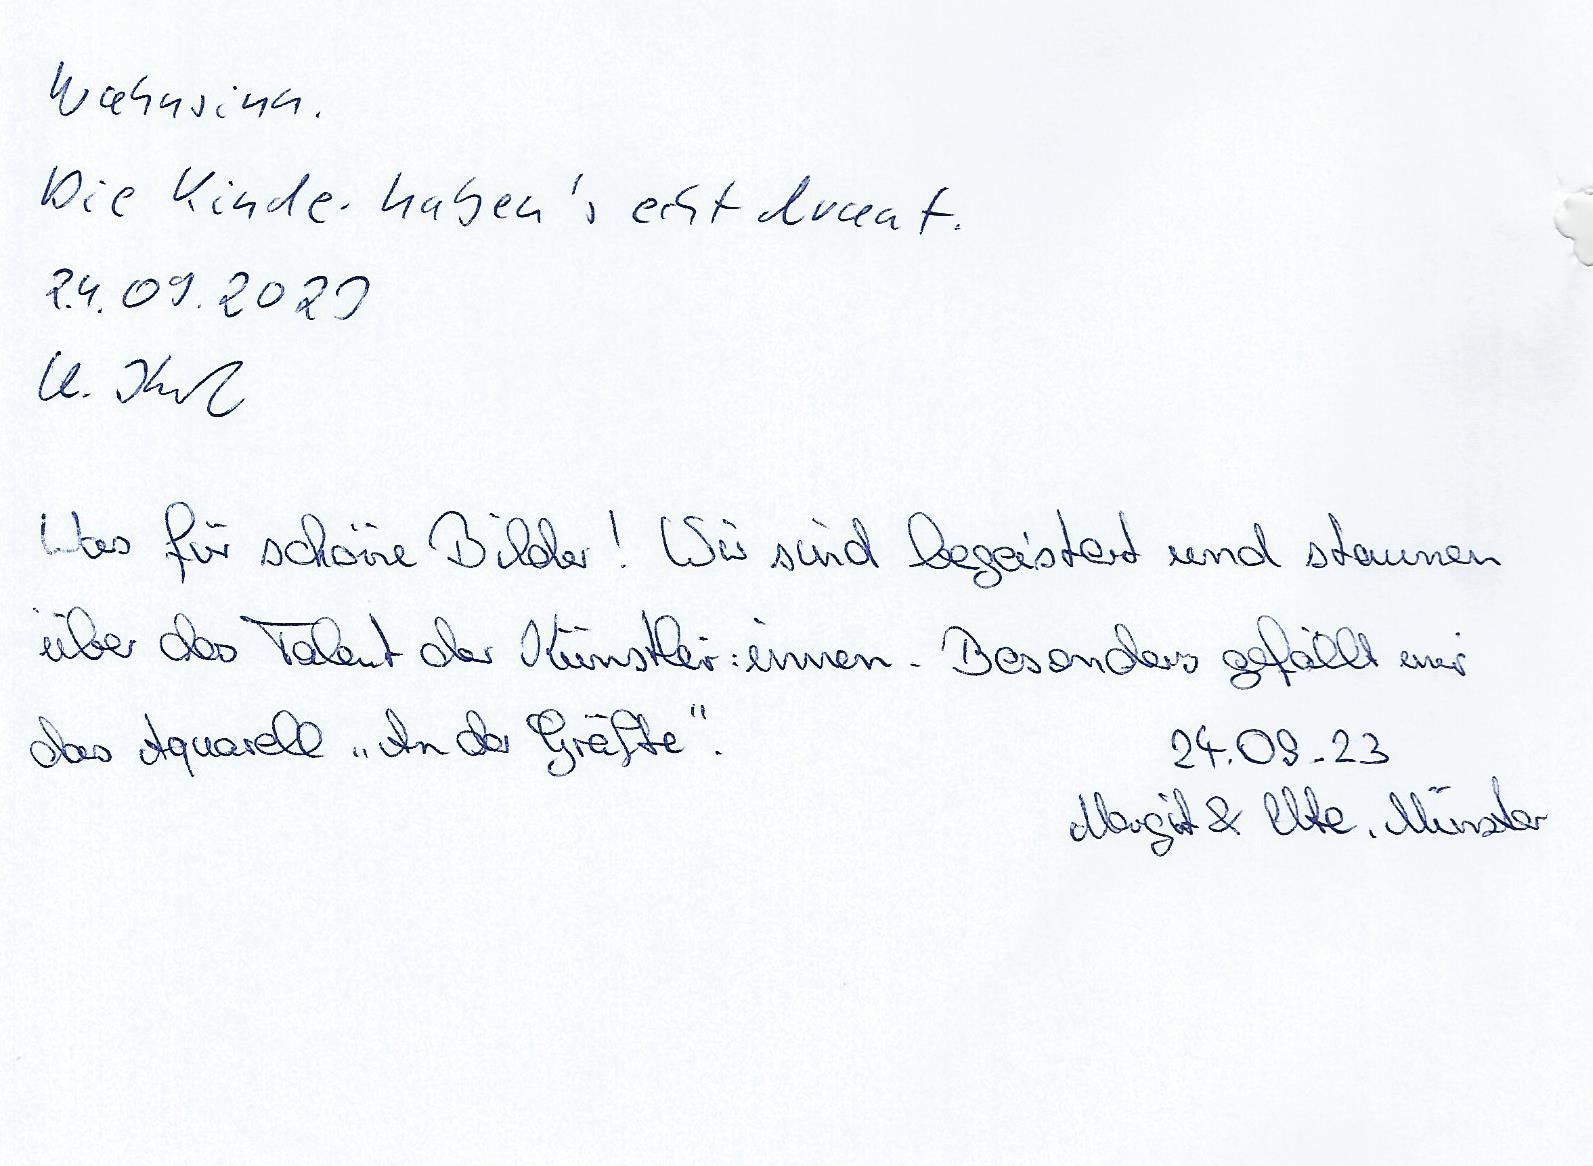 Wahnsinn.
Die Kinder haben's echt drauf.
24.09.2023
U.
Was für schöne Bilder! Wir sind begeistert und staunen
über das Talent der Künstler:innen. Besonders gefällt mir
das Aquarell „An der Gräfte“.
24.09.23
Margit & Ute, Münster